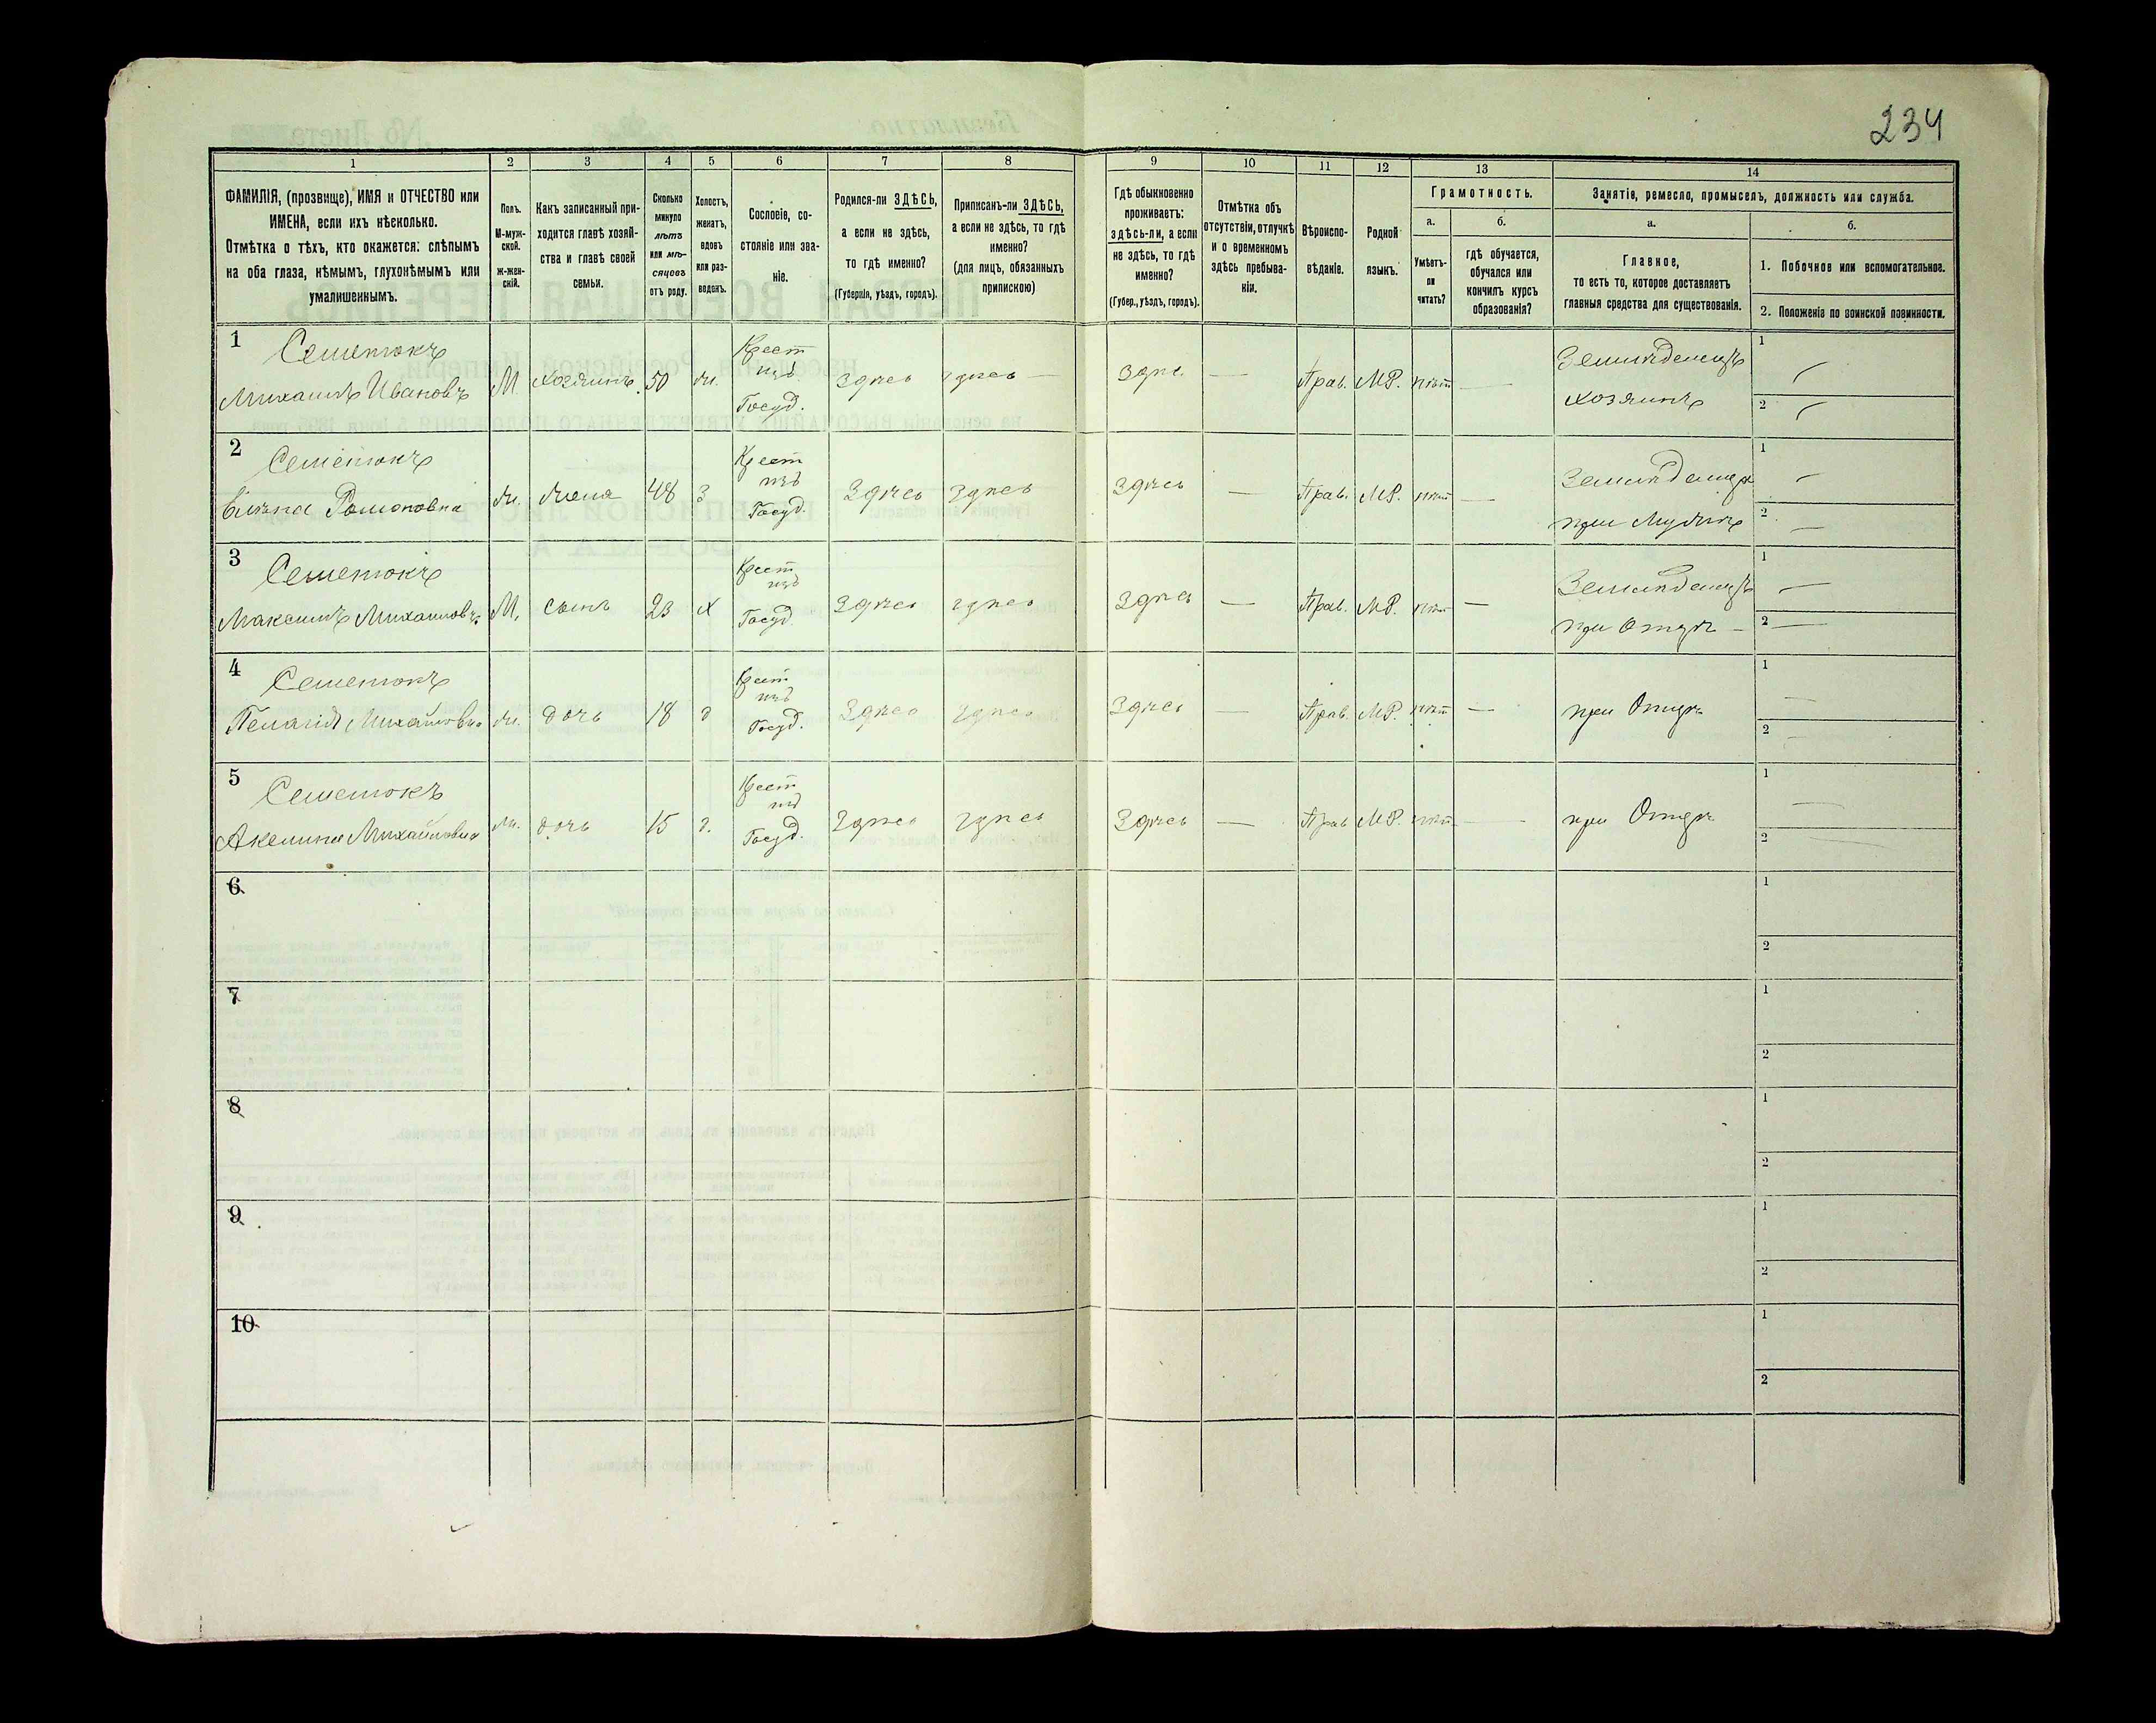 234
1 2 3 4 5 6 7 8 9 10 11 12 13 14
ФАМИЛІЯ, (прозвище), ИМЯ и ОТЧЕСТВО или
ИМЕНА, если ихъ нѣсколько.
Отмѣтка о тѣхъ, кто окажется: слѣпымъ
на оба глаза, нѣмымъ, глухонѣмымъ или
умалишеннымъ.
Полъ.
М-муж-
ской.
ж-жен-
скій.
Какъ записанный при-
ходится главѣ хозяй-
ства и главѣ своей
семьи.
Сколько
минуло
лѣтъ
или мѣ-
сяцовъ
отъ роду.
Холостъ,
женатъ,
вдовъ
или раз-
веденъ.
Сословіе, со-
стояніе или зва-
ніе.
Родился-ли ЗДѢСЬ,
а если не здѣсь,
то гдѣ именно?
(Губернія, уѣздъ, городъ).
Приписанъ-ли ЗДѢСЬ,
а если не здѣсь, то гдѣ
именно?
(для лицъ, обязанныхъ
припискою)
Гдѣ обыкновенно
проживаетъ:
здѣсь-ли, а если
не здѣсь, то гдѣ
именно?
(Губер., уѣздъ, городъ).
Отмѣтка объ
отсутствіи, отлучкѣ
и о временномъ
здѣсь пребыва-
ніи.
Вѣроиспо-
вѣданіе.
Родной
языкъ.
Грамотность.
а.
Умѣетъ-
ли
читать?
б.
гдѣ обучается,
обучался или
кончилъ курсъ
образованія?
Занятіе, ремесло, промыселъ, должность или служба.
а.
Главное,
то есть то, которое доставляетъ
главныя средства для существованія.
б.
1. Побочное или вспомогательное.
2. Положеніе по воинской повинности.
1 Семенюкъ
Михаилъ Ивановъ М хозяинъ 50 ж.
Крест
изъ
Госуд.
Здѣсь здѣсь — Здѣс. — Прав. МР. нѣт —
Земледѣлецъ
хозяинъ
1 —
2 —
2 Семенюкъ
Елена Романовна ж. жена 48 з
Крест
изъ
Госуд.
Здѣсь Здѣсь Здѣсь — Прав. МР. нѣт —
при Мужѣ
1 —
2 —
3 Семенюкъ
Максимъ Михаиловъ М. сынъ 23 х
Крест
изъ
Госуд.
Здѣсь здѣсь Здѣсь — Прав. МР. нѣт —
Земледѣлецъ
при Отцѣ —
1 —
2 —
4 Семенюкъ
Пелагія Михайловна ж. дочь 18 д
Крест
изъ
Госуд.
Здѣсь Здѣсь Здѣсь — Прав. МР. нѣт —
при Отцѣ
1 —
2 —
5 Семенюкъ
Акелина Михайловна ж. дочь 15 д.
Крест
изъ
Госуд.
Здѣсь Здѣсь Здѣсь — Прав МР. нѣт —
при Отцѣ
1 —
2 —
6
1
2
7
1
2
8
1
2
9
1
2
10
1
2